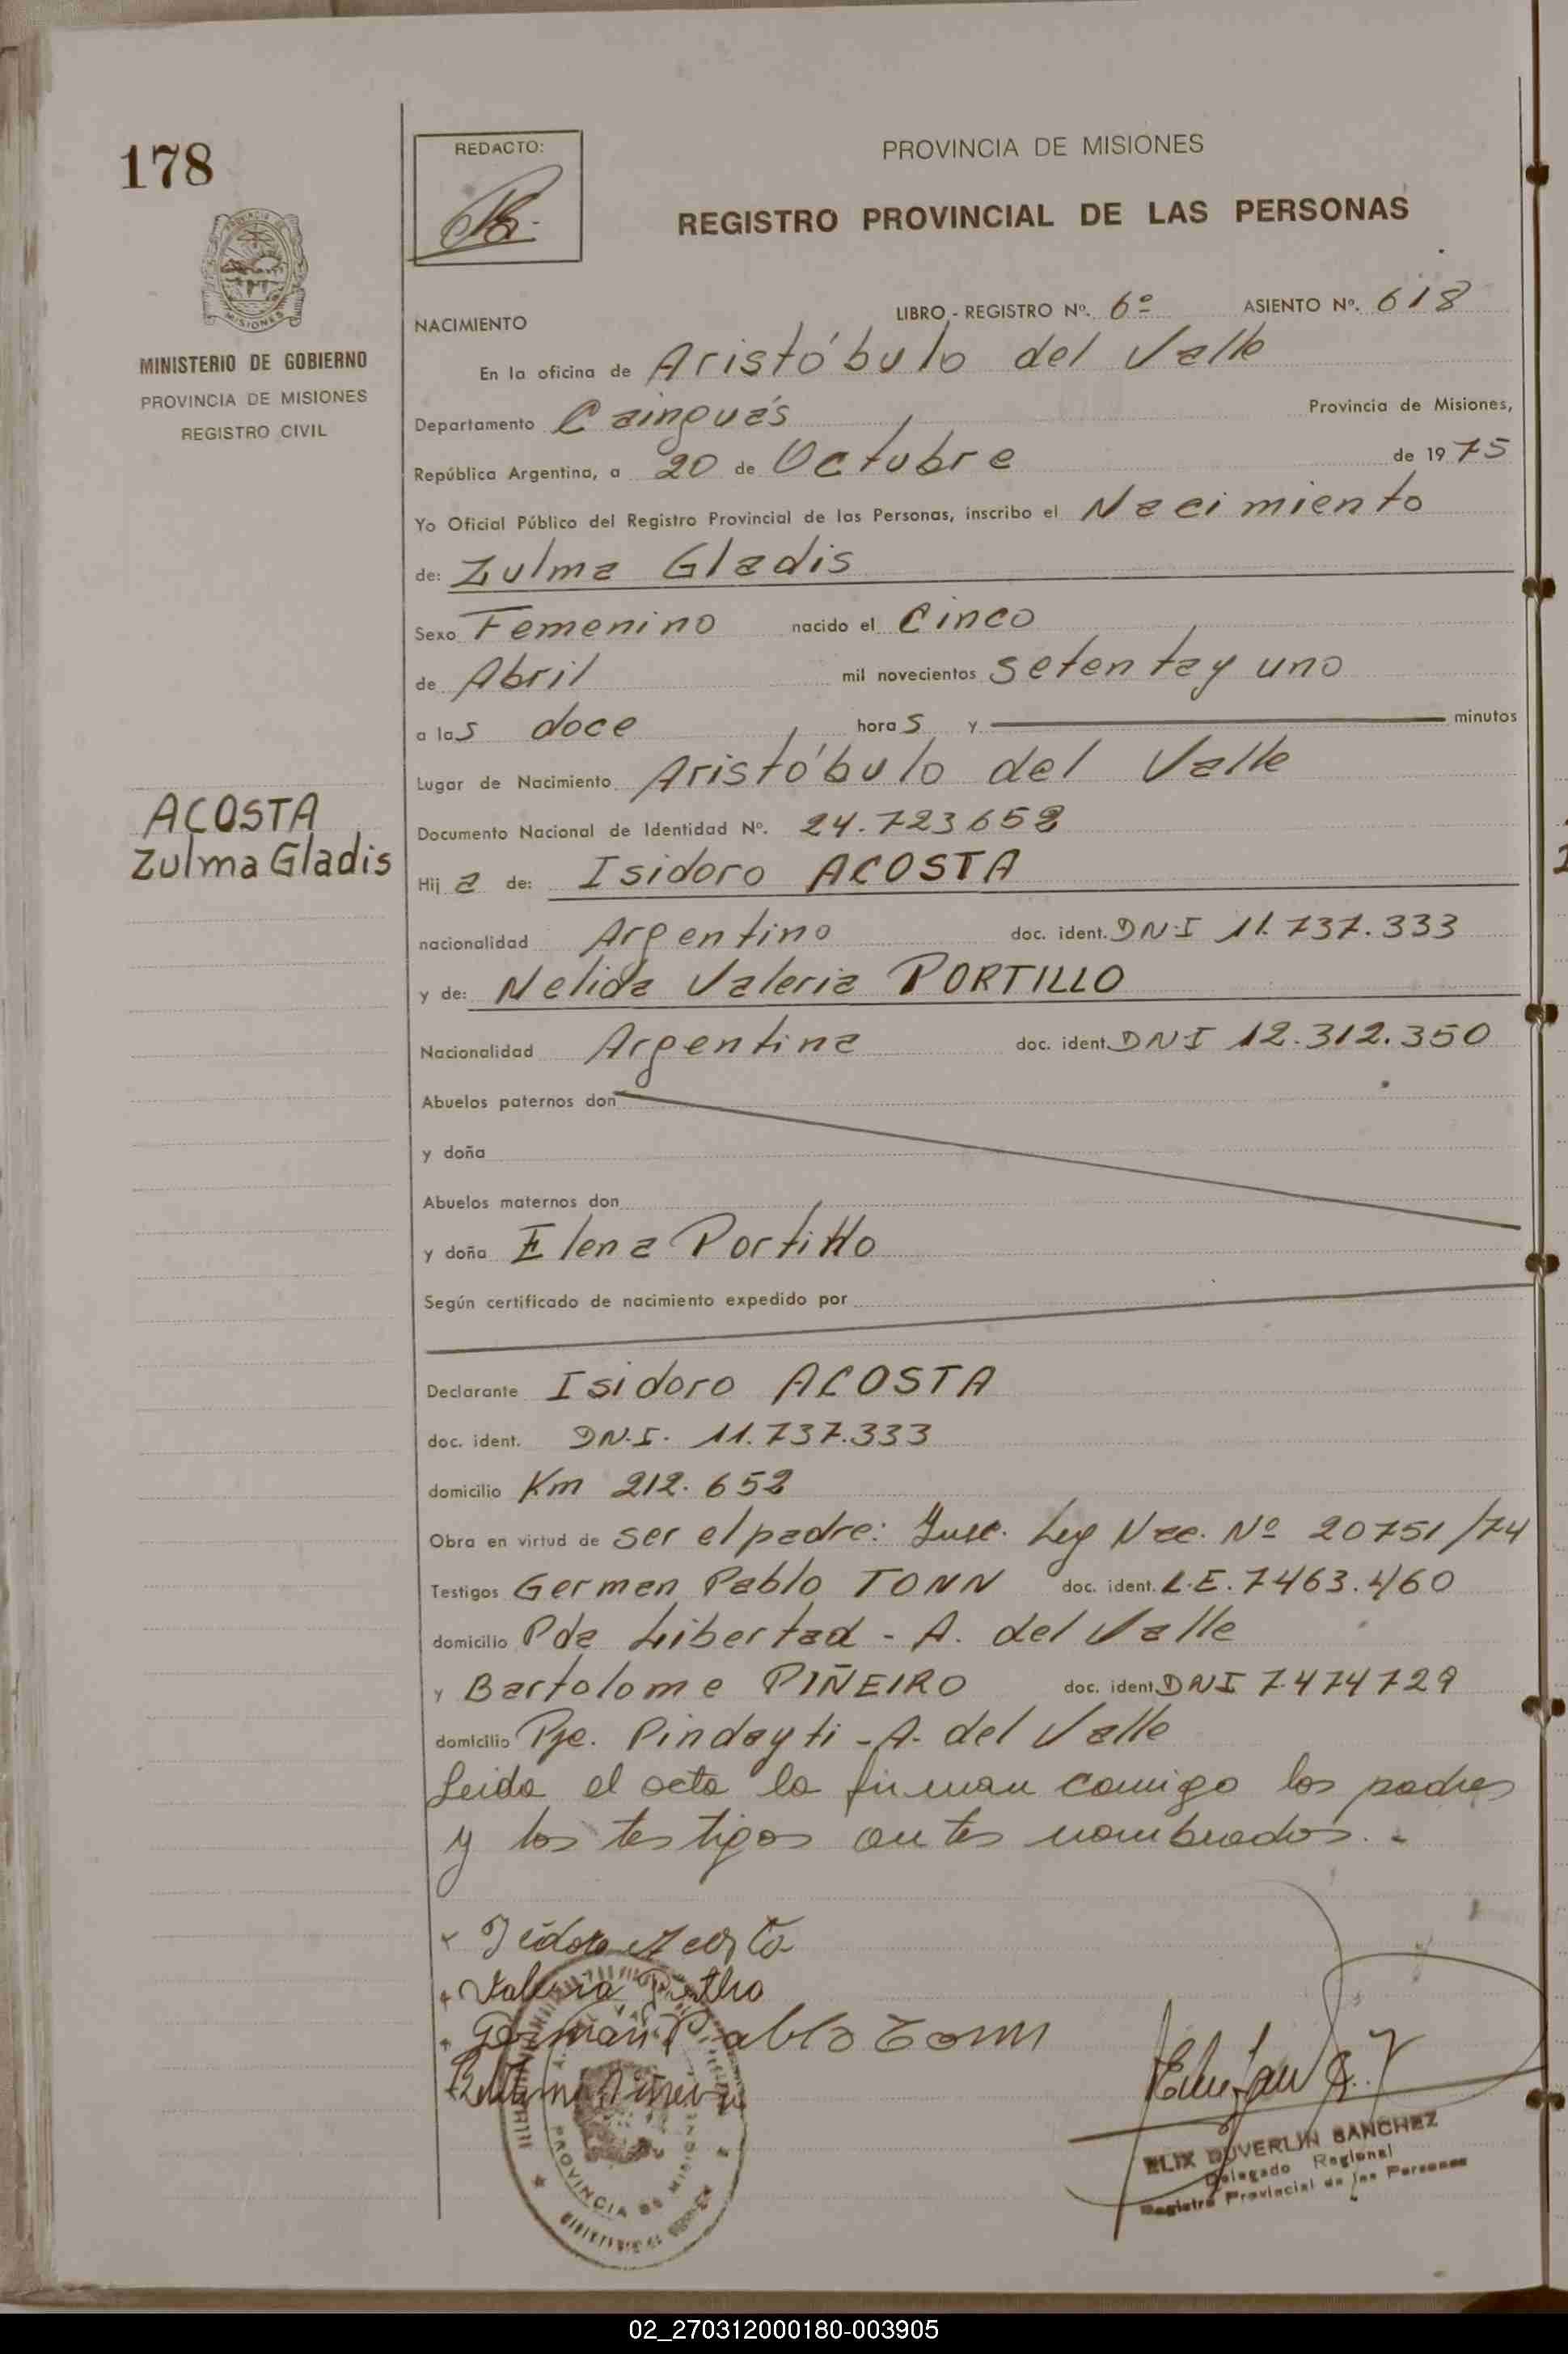 178
REDACTO:
PROVINCIA DE MISIONES
REGISTRO PROVINCIAL DE LAS PERSONAS
MISIONES
MINISTERIO DE GOBIERNO
PROVINCIA DE MISIONES
REGISTRO CIVIL
NACIMIENTO LIBRO - REGISTRO Nº. 6º ASIENTO Nº. 618
En la oficina de Aristóbulo del Valle
Departamento Cainguás Provincia de Misiones,
República Argentina, a 20 de Octubre de 1975
Yo Oficial Público del Registro Provincial de las Personas, inscribo el Nacimiento
de: Zulma Gladis
Sexo Femenino nacido el Cinco
de Abril mil novecientos setenta y uno
a las doce horas y minutos
Lugar de Nacimiento Aristóbulo del Valle
ACOSTA
Zulma Gladis
Documento Nacional de Identidad Nº. 24.723652
Hija de: Isidoro ACOSTA
nacionalidad Argentino doc. ident. DN·I 11.737.333
y de: Nelida Valeria PORTILLO
Nacionalidad Argentina doc. ident. DNI 12.312.350
Abuelos paternos don
y doña
Abuelos maternos don
y doña Elena Portillo
Según certificado de nacimiento expedido por
Declarante Isidoro ACOSTA
doc. ident. DN.I. 11.737.333
domicilio Km 212. 652
Obra en virtud de ser el padre: Insc. Ley Nac. Nº 20751/74
Testigos German Pablo TONN doc. ident. L.E. 7463.460
domicilio Pda Libertad - A. del Valle
y Bartolome PIÑEIRO doc. ident DNI 7.474729
domicilio Pje. Pindayti - A- del Valle
Leida el acta la firman comigo los padres
y los testigos antes nombrados. -
Isidoro Acosta
Valeria Portillo
German Pablo Tonn
PROVINCIA DE MISIONES
ELIX DUVERLIN SANCHEZ
Delegado Regional
Registro Provincial de las Personas
02_270312000180-003905